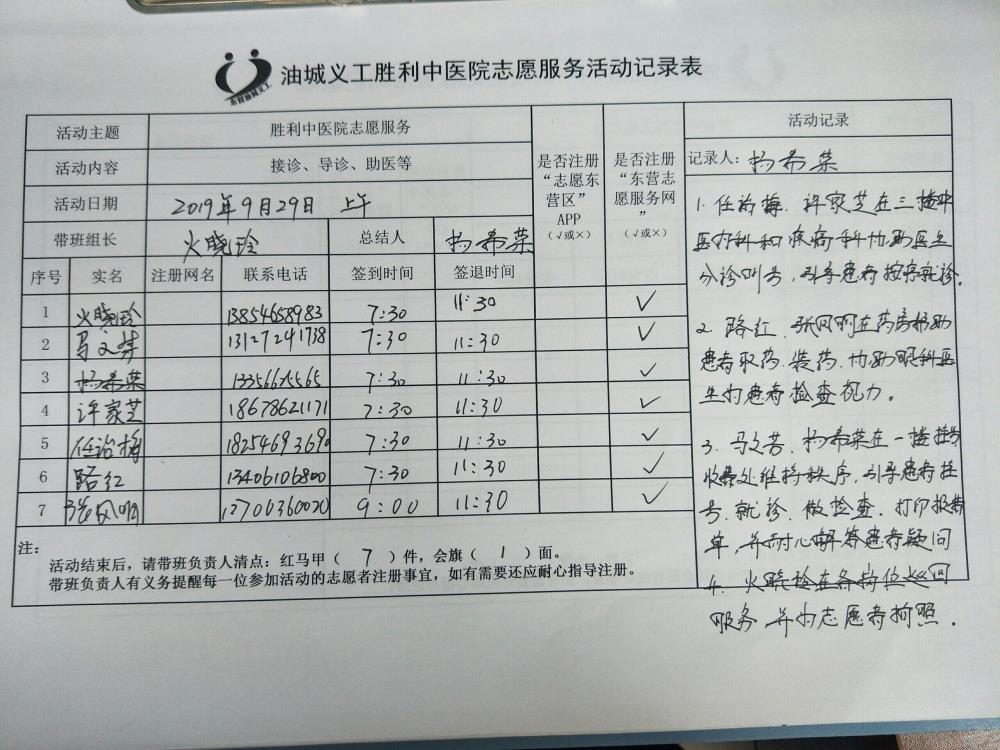 油城义工胜利中医院志愿服务活动记录表
东营油城义工
活动主题 胜利中医院志愿服务
活动内容 接诊、导诊、助医等
活动日期 2019年9月29日 上午
带班组长 火晓玲 总结人 杨希荣
是否注册“志愿东营区”APP（√或×）
是否注册“东营志愿服务网”（√或×）
序号 实名 注册网名 联系电话 签到时间 签退时间
1 火晓玲 13854658983 7:30 11:30 √
2 马文 13127241738 7:30 11:30 √
3 杨希荣 7:30 11:30 √
4 许家芝 18678621171 7:30 11:30 √
5 任治梅 18254693690 7:30 11:30 √
6 路红 13406106800 7:30 11:30 √
7 张风 12700360020 9:00 11:30 √
注：
活动结束后，请带班负责人清点：红马甲（ 7 ）件，会旗（ 1 ）面。
带班负责人有义务提醒每一位参加活动的志愿者注册事宜，如有需要还应耐心指导注册。
活动记录
记录人：杨希荣
1. 任治梅、许家芝在三楼中
医内科和疼痛科协助医生
分诊叫号，引导患者按序就诊。
2. 路红、张风在药房帮助
患者取药、装药，协助眼科医
生为患者检查视力。
3. 马文、杨希荣在一楼挂号
收费处维持秩序，引导患者挂
号、就诊、做检查、打印报告
单，并耐心解答患者疑问
4. 火晓玲在各岗位巡回
服务，并为志愿者拍照。